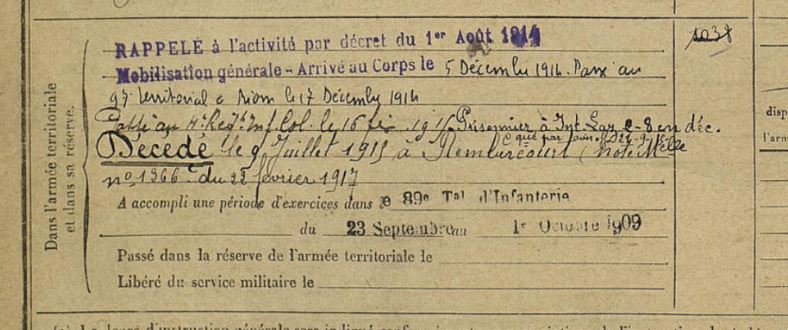 Dans l'armée territoriale
et dans sa réserve.
RAPPELÉ à l'activité par décret du 1er Août 1914
Mobilisation générale - Arrivé au Corps le 5 Décembre 1914. Passé au
97 territorial à Riom le 17 Décembre 1914
Passé au 4e Regt Inf. Col. le 16 1915 Prisonnier à Int. Laz 2-8 en déc.
Décédé le 9 Juillet 1915 à Rembercourt (note Mlle
no 1366 du 28 février 1917
A accompli une période d'exercices dans le 89e Tal d'Infanterie
du 23 Septembre au 1er Octobre 1909
Passé dans la réserve de l'armée territoriale le
Libéré du service militaire le
1038